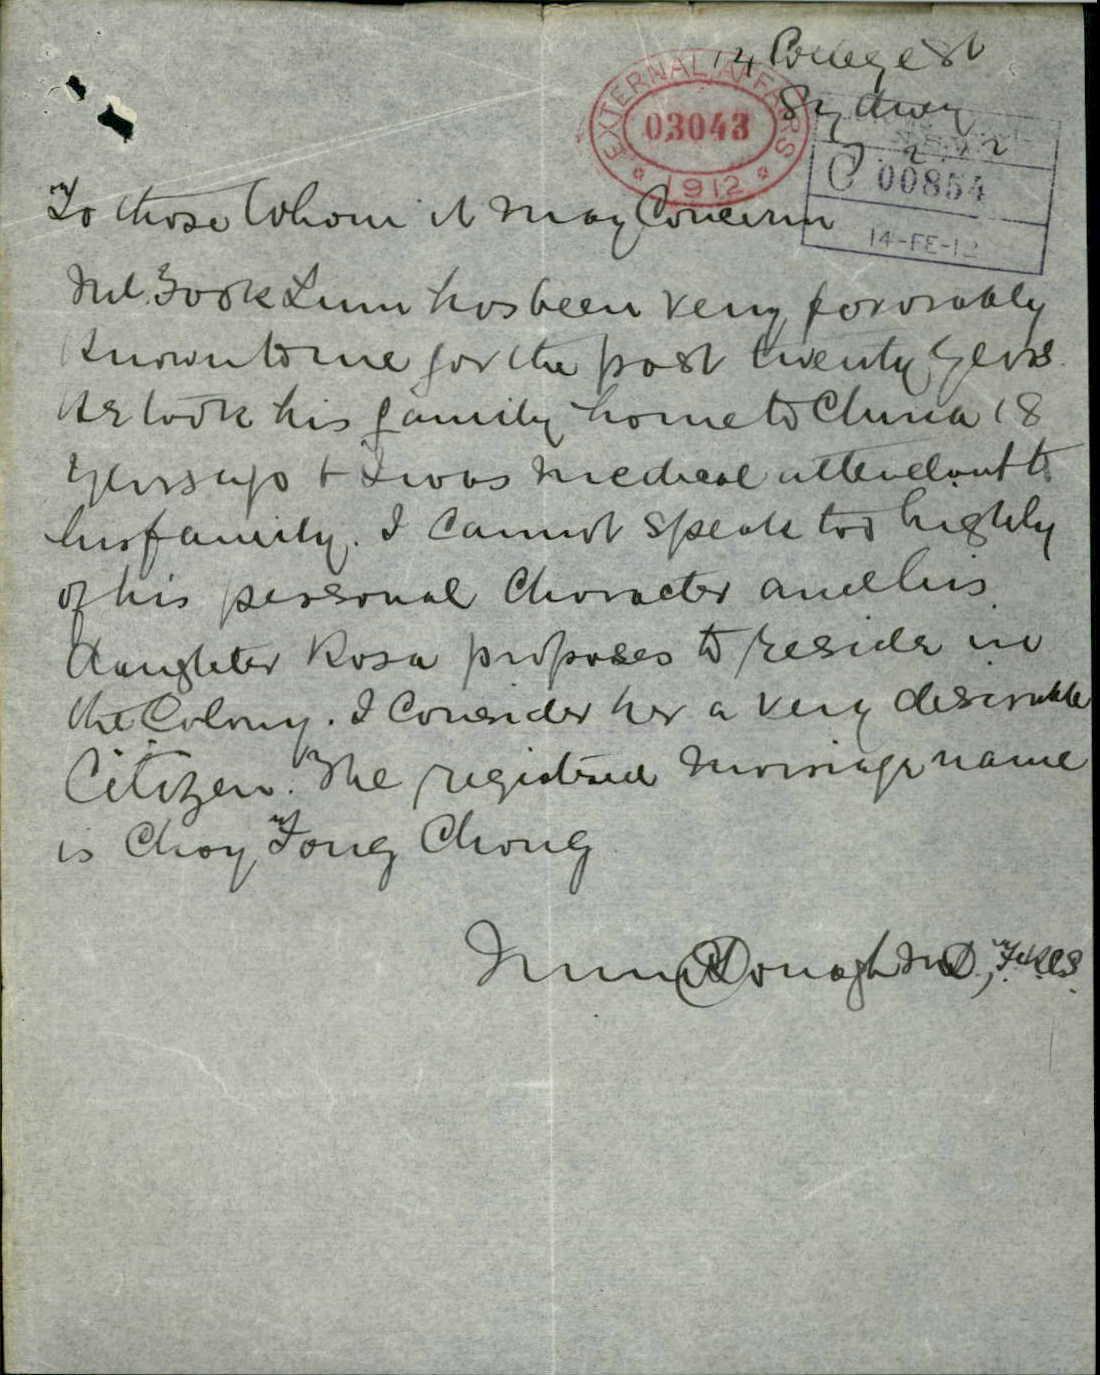 14 College St
Sydney
EXTERNAL AFFAIRS
03043
1912
C 00854
14-FE-12
To those Whom it May Concern
Mr. Gook Lum has been very favorably
Known to me for the past twenty years.
He took his family home to China 18
years ago & I was medical attendant to
his family. I cannot speak too highly
of his personal Character and his
daughter Rosa proposes to reside in
the Colony. I Consider her a very desirable
Citizen. The registered Marriage name
is Choy Fong Chong
Donagh M.D,